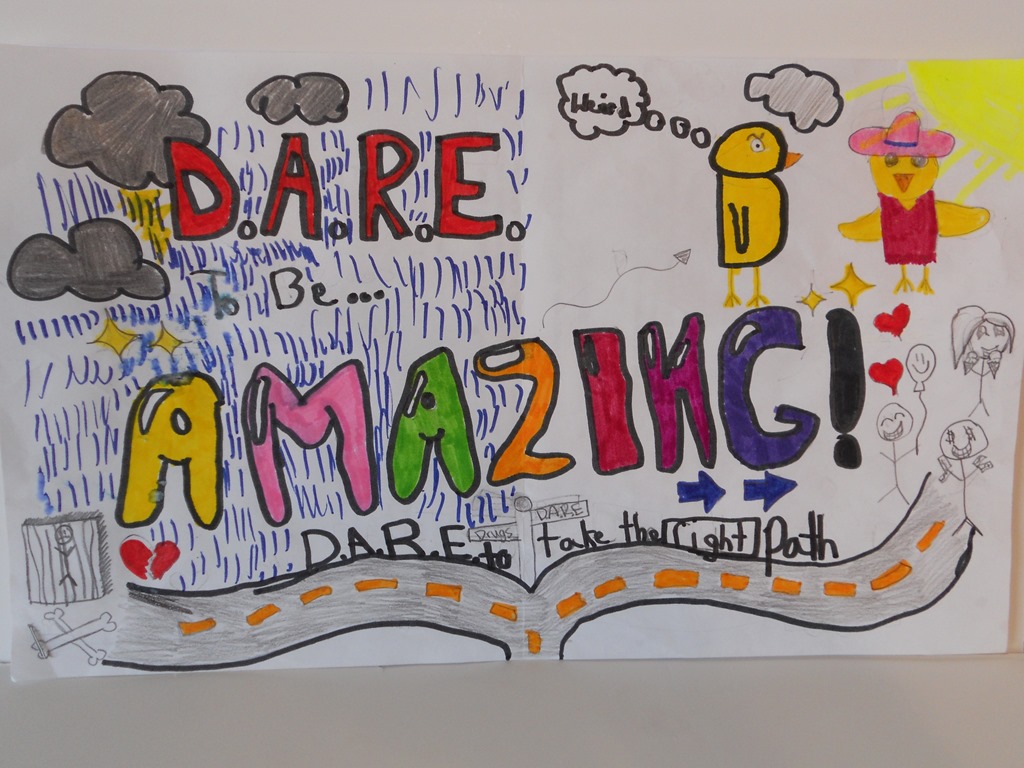 Weird
D.A.R.E.
To Be...
AMAZING!
Drugs
D.A.R.E.
D.A.R.E. to take the right path